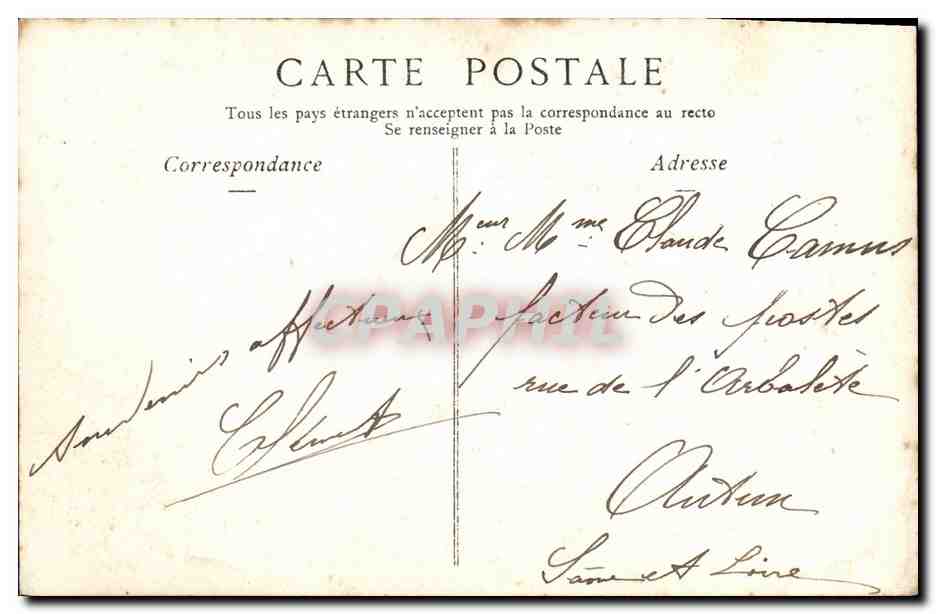 CARTE POSTALE
Tous les pays étrangers n'acceptent pas la correspondance au recto
Se renseigner à la Poste
Correspondance
Adresse
Souvenirs affectueux
Meur Mme Claude Camus
facteur des postes
rue de l'Arbalète
Autun
Saône et Loire
CPAPHIL